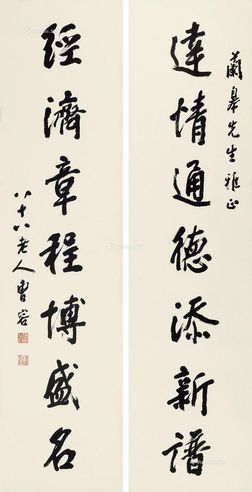 蘭皋先生雅正
達情通德添新譜
經濟章程博盛名
八十八老人曹容